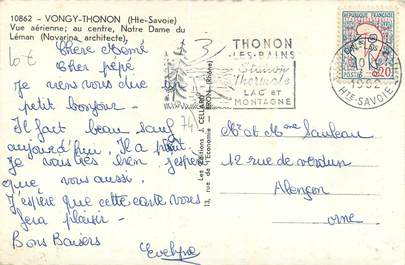 10862 - VONGY-THONON (Hte-Savoie)
Vue aérienne; au centre, Notre Dame du
Léman (Novarina architecte).
10 €
Chère Mémé
Cher pépé
Je viens vous dire un
petit bonjour -
Il fait beau sauf
aujourd'hui. Il a plu
Je vais très bien j'espère
que vous aussi.
J'espère que cette carte vous
fera plaisir -
Bons Baisers
Evelyne
74
Les Editions J. CELLARD
13, rue de l'Economie BRON (Rhône)
THONON
-LES-BAINS
Station
Thermale
LAC et
MONTAGNE
REPUBLIQUE FRANCAISE
POSTES 0,20
1962
HTE-SAVOIE
Mr et Mme Lauleau
12 rue de verdun
Alençon
orne